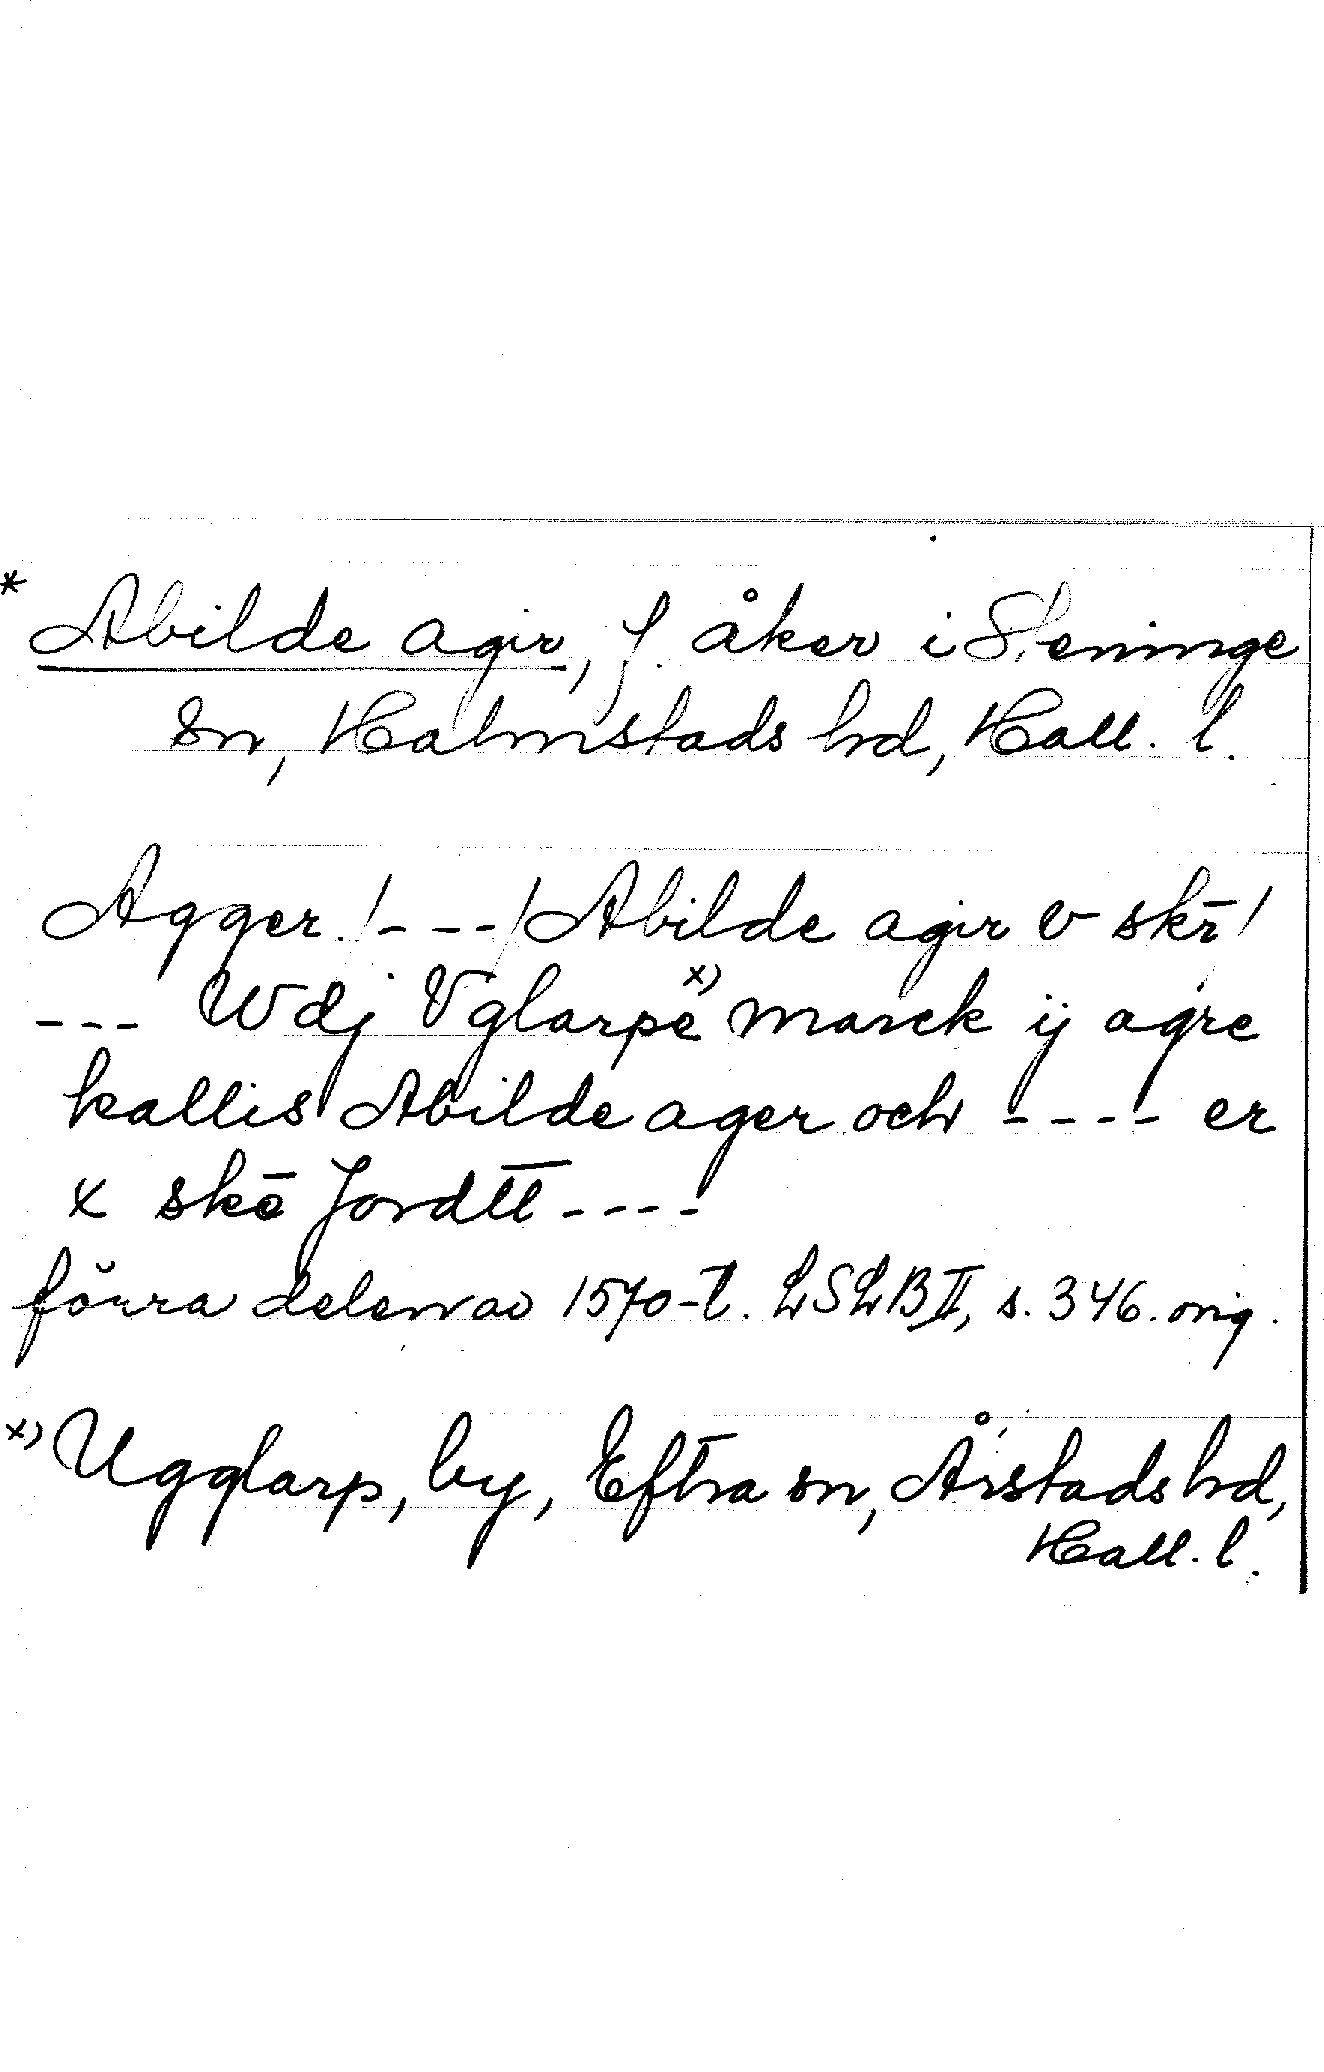 * Abilde agir, f. åker i Steninge
sn, Halmstads hd, Hall. l.
Agger /---/ Abilde agir v skr̄ /
--- Wdj Vglarpē x) marck ij agre
kallis Abilde ager och ---- er
x skē Jordtt ----
förra delen av 1570-t. LSLB II, s. 346. orig.
x) Ugglarp, by, Eftra sn, Årstads hd,
Hall. l.